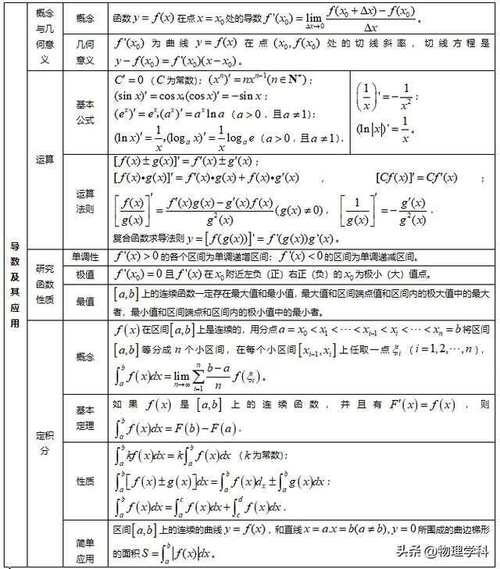 导数及其应用
概念与几何意义
概念
函数 y=f(x) 在点 x=x₀ 处的导数 f'(x₀)=lim_{Δx→0} (f(x₀+Δx)−f(x₀))/Δx 。
几何意义
f'(x₀) 为曲线 y=f(x) 在点 (x₀,f(x₀)) 处的切线斜率，切线方程是
y−f(x₀)=f'(x₀)(x−x₀) 。
运算
基本公式
C'=0（C 为常数）; (xⁿ)'=nxⁿ⁻¹(n∈N*) ;
(sin x)'=cos x,(cos x)'=−sin x ;
(eˣ)'=eˣ,(aˣ)'=aˣ ln a（a>0，且 a≠1）;
(ln x)'=1/x,(logₐ x)'=1/x logₐ e（a>0，且 a≠1）.
(1/x)'=−1/x² ;
(ln|x|)'=1/x .
运算法则
[f(x)±g(x)]'=f'(x)±g'(x) ;
[f(x)•g(x)]'=f'(x)•g(x)+f(x)•g'(x) ， [Cf(x)]'=Cf'(x) ;
[f(x)/g(x)]'=(f'(x)g(x)−g'(x)f(x))/g²(x) (g(x)≠0), [1/g(x)]'=−g'(x)/g²(x) .
复合函数求导法则 y=[f(g(x))]'=f'(g(x))g'(x) .
研究函数性质
单调性
f'(x)>0 的各个区间为单调递增区间; f'(x)<0 的区间为单调递减区间。
极值
f'(x₀)=0 且 f'(x) 在 x₀ 附近左负（正）右正（负）的 x₀ 为极小（大）值点。
最值
[a,b] 上的连续函数一定存在最大值和最小值，最大值和区间端点值和区间内的极大值中的最大
者，最小值和区间端点和区间内的极小值中的最小者。
定积分
概念
f(x) 在区间 [a,b] 上是连续的，用分点 a=x₀<x₁<⋯<xᵢ₋₁<xᵢ<⋯<xₙ=b 将区间
[a,b] 等分成 n 个小区间，在每个小区间 [xᵢ₋₁,xᵢ] 上任取一点 ξᵢ（i=1,2,⋯,n），
∫ₐᵇ f(x)dx=lim_{n→∞} ∑ᵢ₌₁ⁿ (b−a)/n f(ξᵢ) 。
基本定理
如果 f(x) 是 [a,b] 上的连续函数，并且有 F'(x)=f(x)，则
∫ₐᵇ f(x)dx=F(b)−F(a) .
性质
∫ₐᵇ kf(x)dx=k∫ₐᵇ f(x)dx（k 为常数）;
∫ₐᵇ [f(x)±g(x)]dx=∫ₐᵇ f(x)dₓ±∫ₐᵇ g(x)dx ;
∫ₐᵇ f(x)dx=∫ₐᶜ f(x)dx+∫_c^d f(x)dx .
简单应用
区间 [a,b] 上的连续的曲线 y=f(x)，和直线 x=a.x=b(a≠b),y=0 所围成的曲边梯形
的面积 S=∫ₐᵇ |f(x)|dx 。
头条 @物理学科